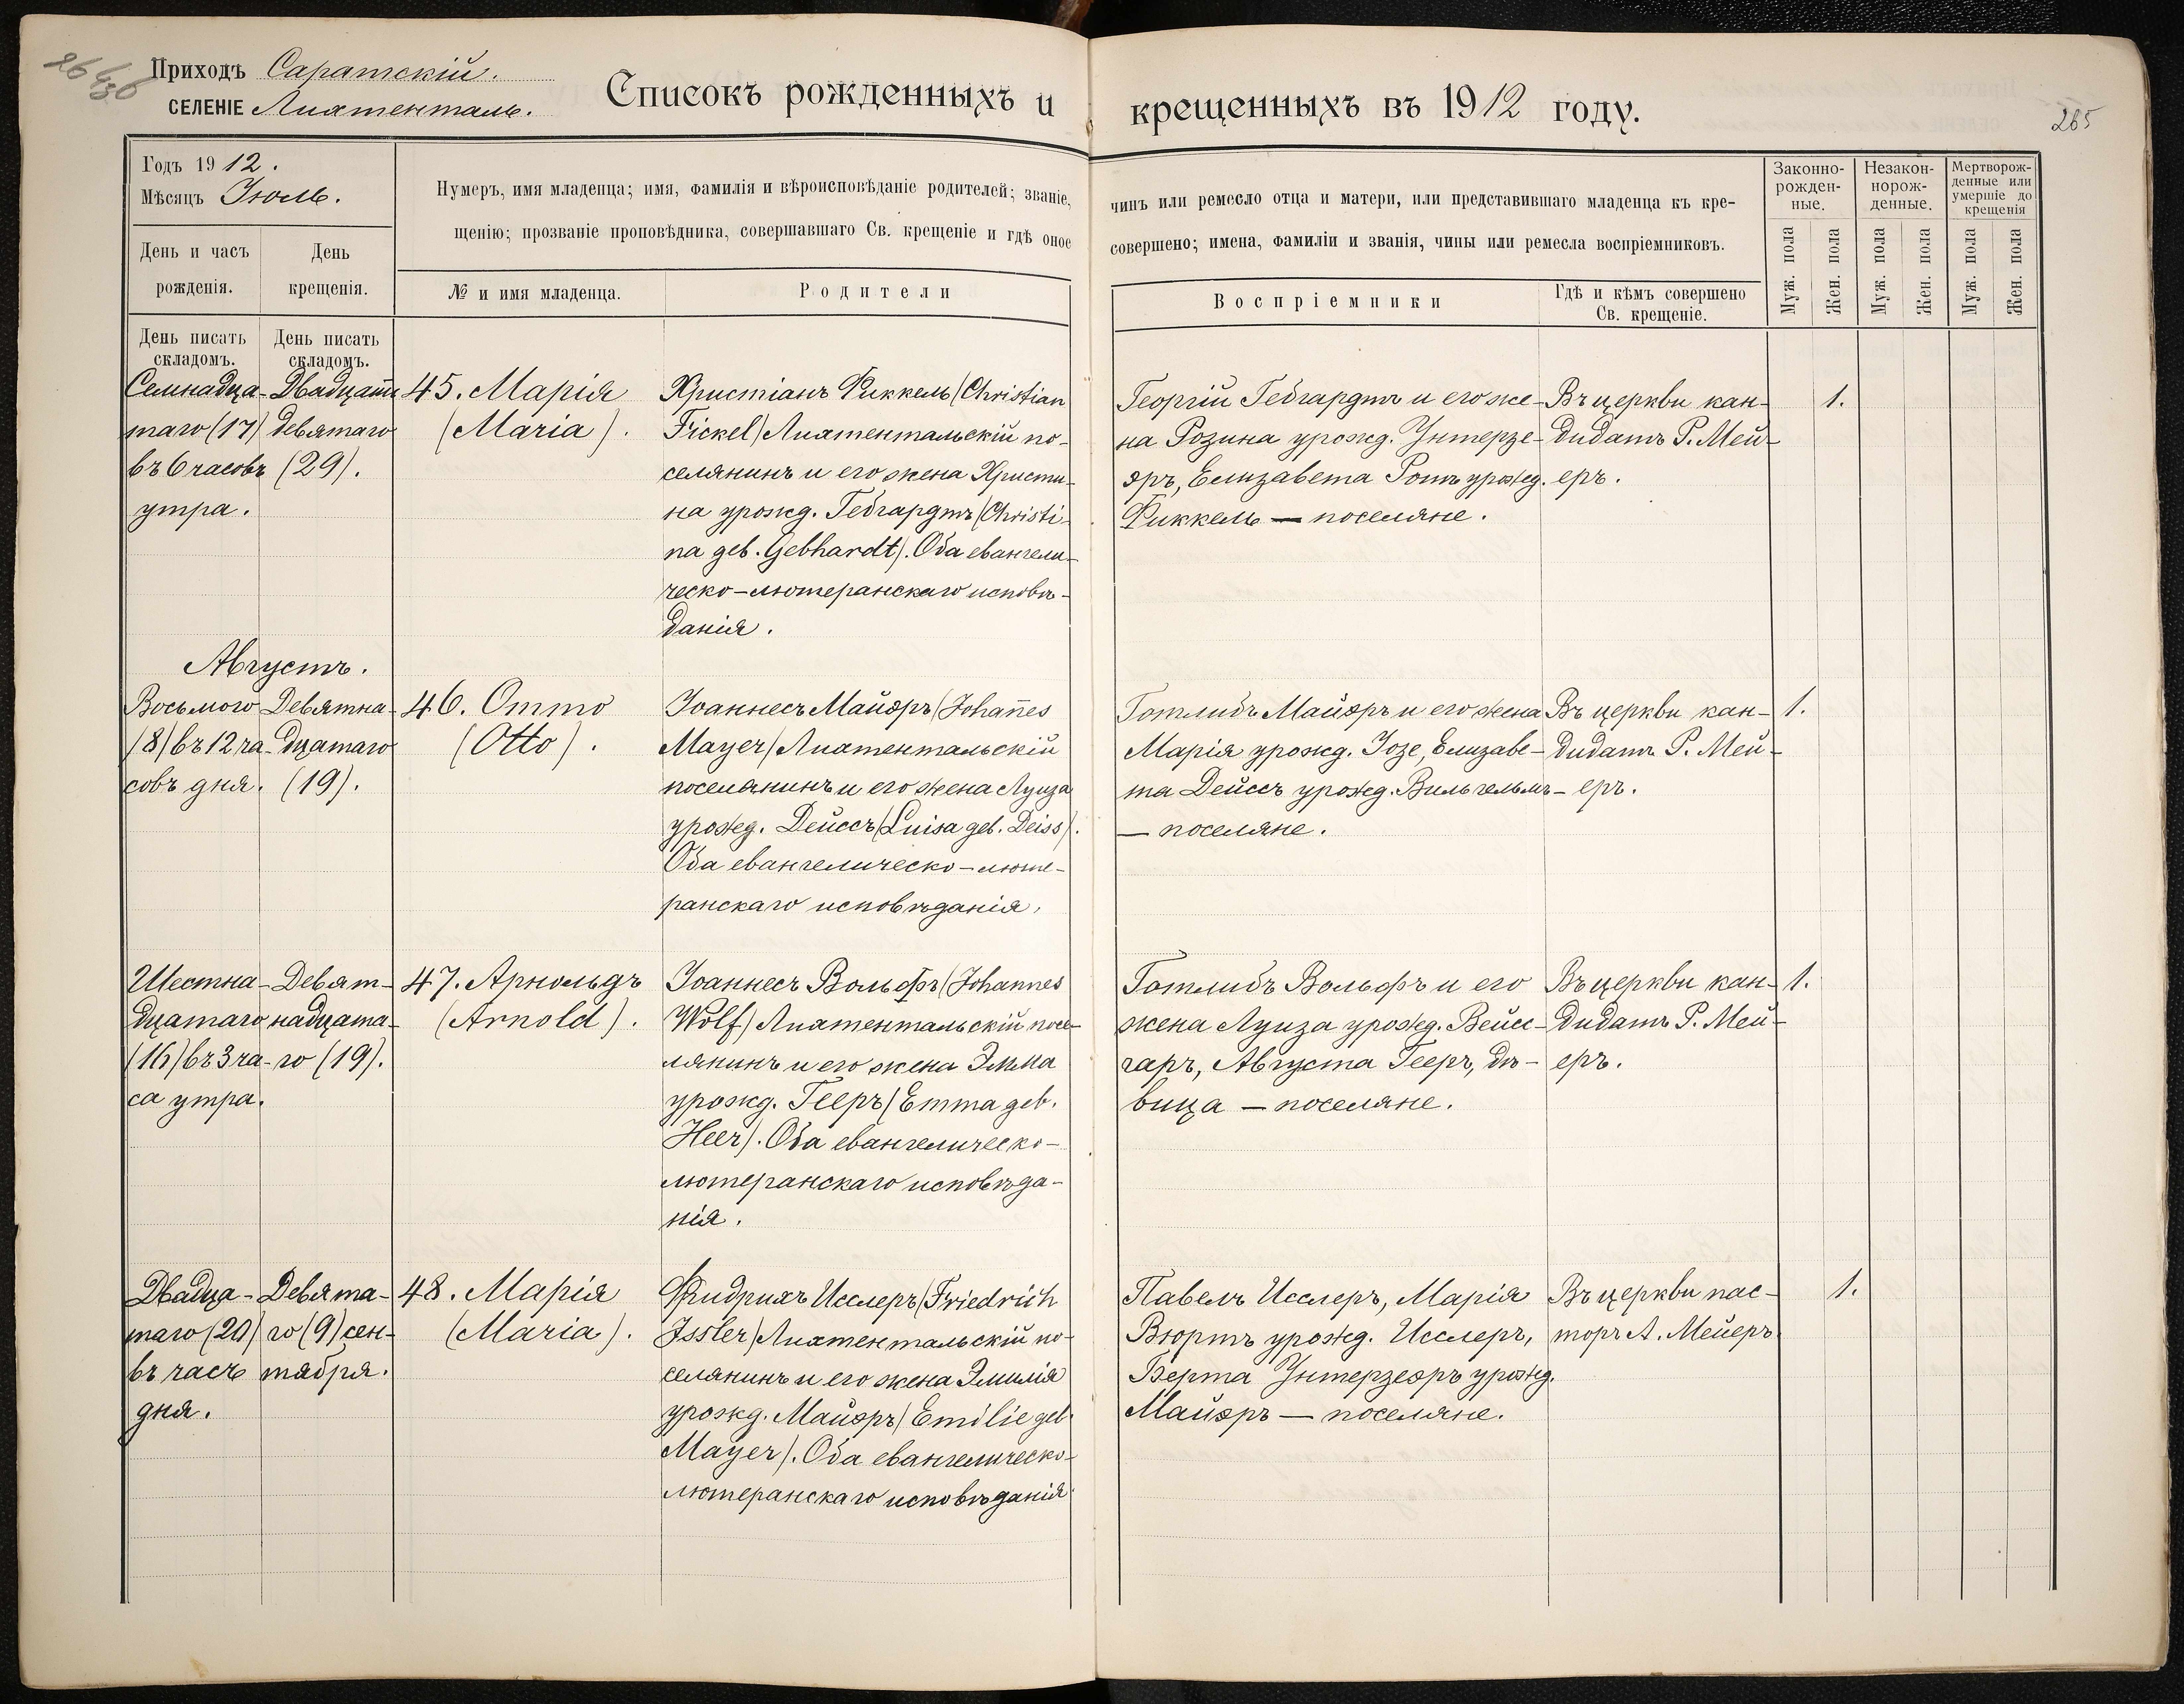 Приходъ Саратскій.
СЕЛЕНІЕ Лихтенталь.
Списокъ рожденныхъ и крещенныхъ въ 1912 году.
265
Годъ 1912.
Мѣсяцъ Іюль.
День и часъ рожденія.
День крещенія.
Нумеръ, имя младенца; имя, фамилія и вѣроисповѣданіе родителей; званіе, чинъ или ремесло отца и матери, или представившаго младенца къ кре-
щенію; прозваніе проповѣдника, совершавшаго Св. крещеніе и гдѣ оное совершено; имена, фамиліи и званія, чины или ремесла воспріемниковъ.
№ и имя младенца.
Родители
Воспріемники
Гдѣ и кѣмъ совершено
Св. крещеніе.
Законно-
рожден-
ные.
Незакон-
норож-
денные.
Мертворож-
денные или
умершіе до
крещенія
Муж. пола
Жен. пола
Муж. пола
Жен. пола
Муж. пола
Жен. пола
День писать
складомъ.
День писать
складомъ.
Семнадца-
таго (17)
въ 6 часовъ
утра.
Двадцать
девятаго
(29).
45. Марія
(Maria).
Христіанъ Фиккель (Christian
Fickel) Лихтентальскій по-
селянинъ и его жена Христи-
на урожд. Гебгардтъ (Christi-
na geb. Gebhardt). Оба евангели-
ческо-лютеранскаго исповѣ-
данія.
Георгій Гебгардтъ и его же-
на Розина урожд. Унтерзе-
эръ, Елизавета Ротъ урожд.
Фиккель — поселяне.
Въ церкви кан-
дидатъ Р. Мей-
еръ.
1.
Августъ.
Восьмого
(8) въ 12 ча-
совъ дня.
Девятна-
дцатаго
(19).
46. Отто
(Otto).
Іоаннесъ Майэръ (Johan̄es
Mayer) Лихтентальскій
поселянинъ и его жена Луиза
урожд. Дейссъ (Luisa geb. Deiss).
Оба евангелическо-люте-
ранскаго исповѣданія.
Готлибъ Майэръ и его жена
Марія урожд. Іозе, Елизаве-
та Дейссъ урожд. Вильгельмъ-
— поселяне.
Въ церкви кан-
дидатъ Р. Мей-
еръ.
1.
Шестна-
дцатаго
(16) въ 3 ча-
са утра.
Девят-
надцата-
го (19).
47. Арнольдъ
(Arnold).
Іоаннесъ Вольфъ (Johannes
Wolf) Лихтентальскій посе-
лянинъ и его жена Эмма
урожд. Гееръ (Emma geb.
Heer). Оба евангелическо-
лютеранскаго исповѣда-
нія.
Готлибъ Вольфъ и его
жена Луиза урожд. Вейсс-
гаръ, Августа Гееръ, дѣ-
вица — поселяне.
Въ церкви кан-
дидатъ Р. Мей-
еръ.
1.
Двадца-
таго (20)
въ часъ
дня.
Девята-
го (9) сен-
тября.
48. Марія
(Maria).
Фридрихъ Исслеръ (Friedrich
Issler) Лихтентальскій по-
селянинъ и его жена Эмилія
урожд. Майэръ (Emilie geb.
Mayer). Оба евангелическо-
лютеранскаго исповѣданія.
Павелъ Исслеръ, Марія
Вюртъ урожд. Исслеръ,
Берта Унтерзеэръ урожд.
Майэръ — поселяне.
Въ церкви пас-
торъ А. Мейеръ.
1.